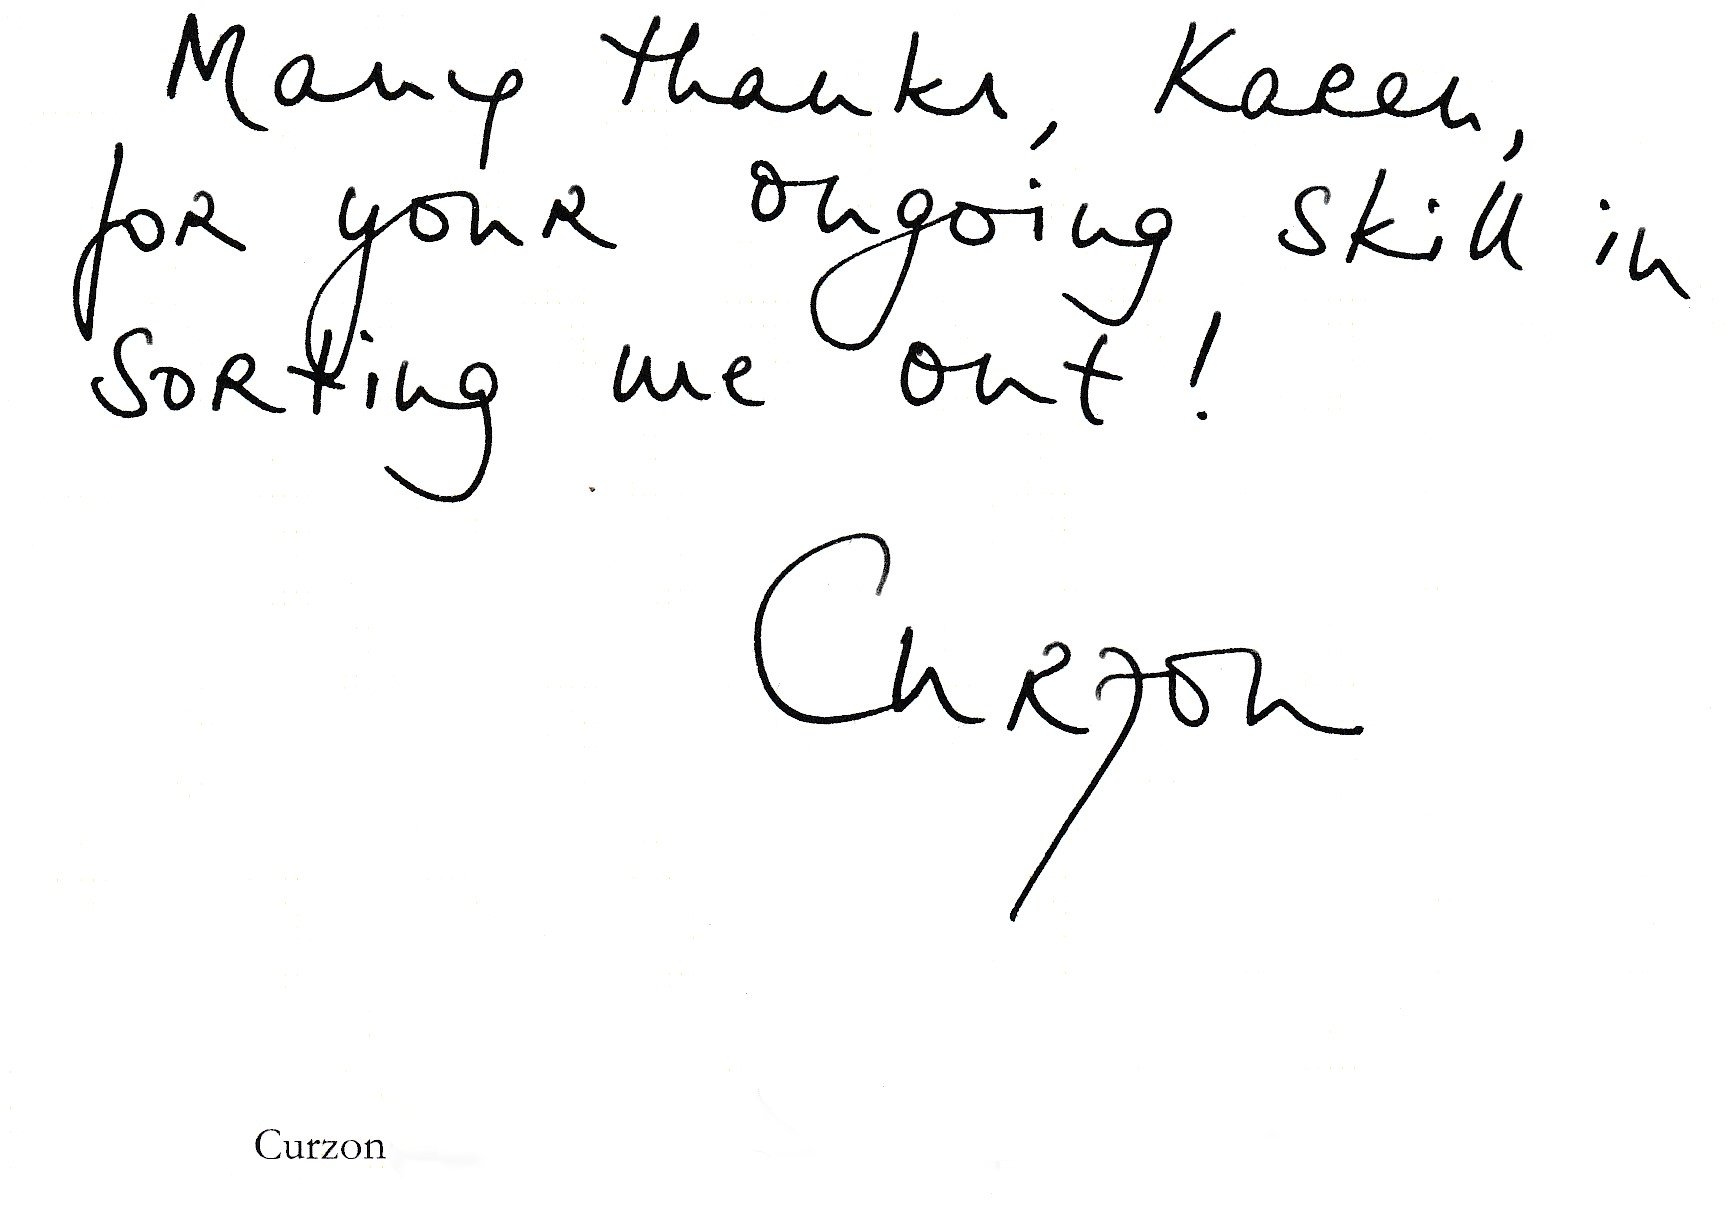 Many thanks, Karen,
for your ongoing skill in
sorting me out!
Curzon
Curzon